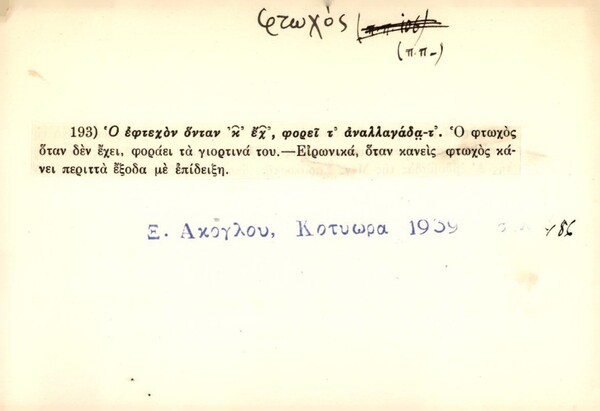 φτωχός (π.π. 106)
(π.π.)
193) Ὁ ἐφτεχὸν ὅνταν ᾿κ̂ ἔχ̂, φορεῖ τ᾿ ἀναλλαγάδα̤-τ᾿. Ὁ φτωχὸς
ὅταν δὲν ἔχει, φοράει τὰ γιορτινά του.—Εἰρωνικά, ὅταν κανεὶς φτωχὸς κά-
νει περιττὰ ἔξοδα μὲ ἐπίδειξη.
Ξ. Ακογλου, Κοτυωρα 1939 486